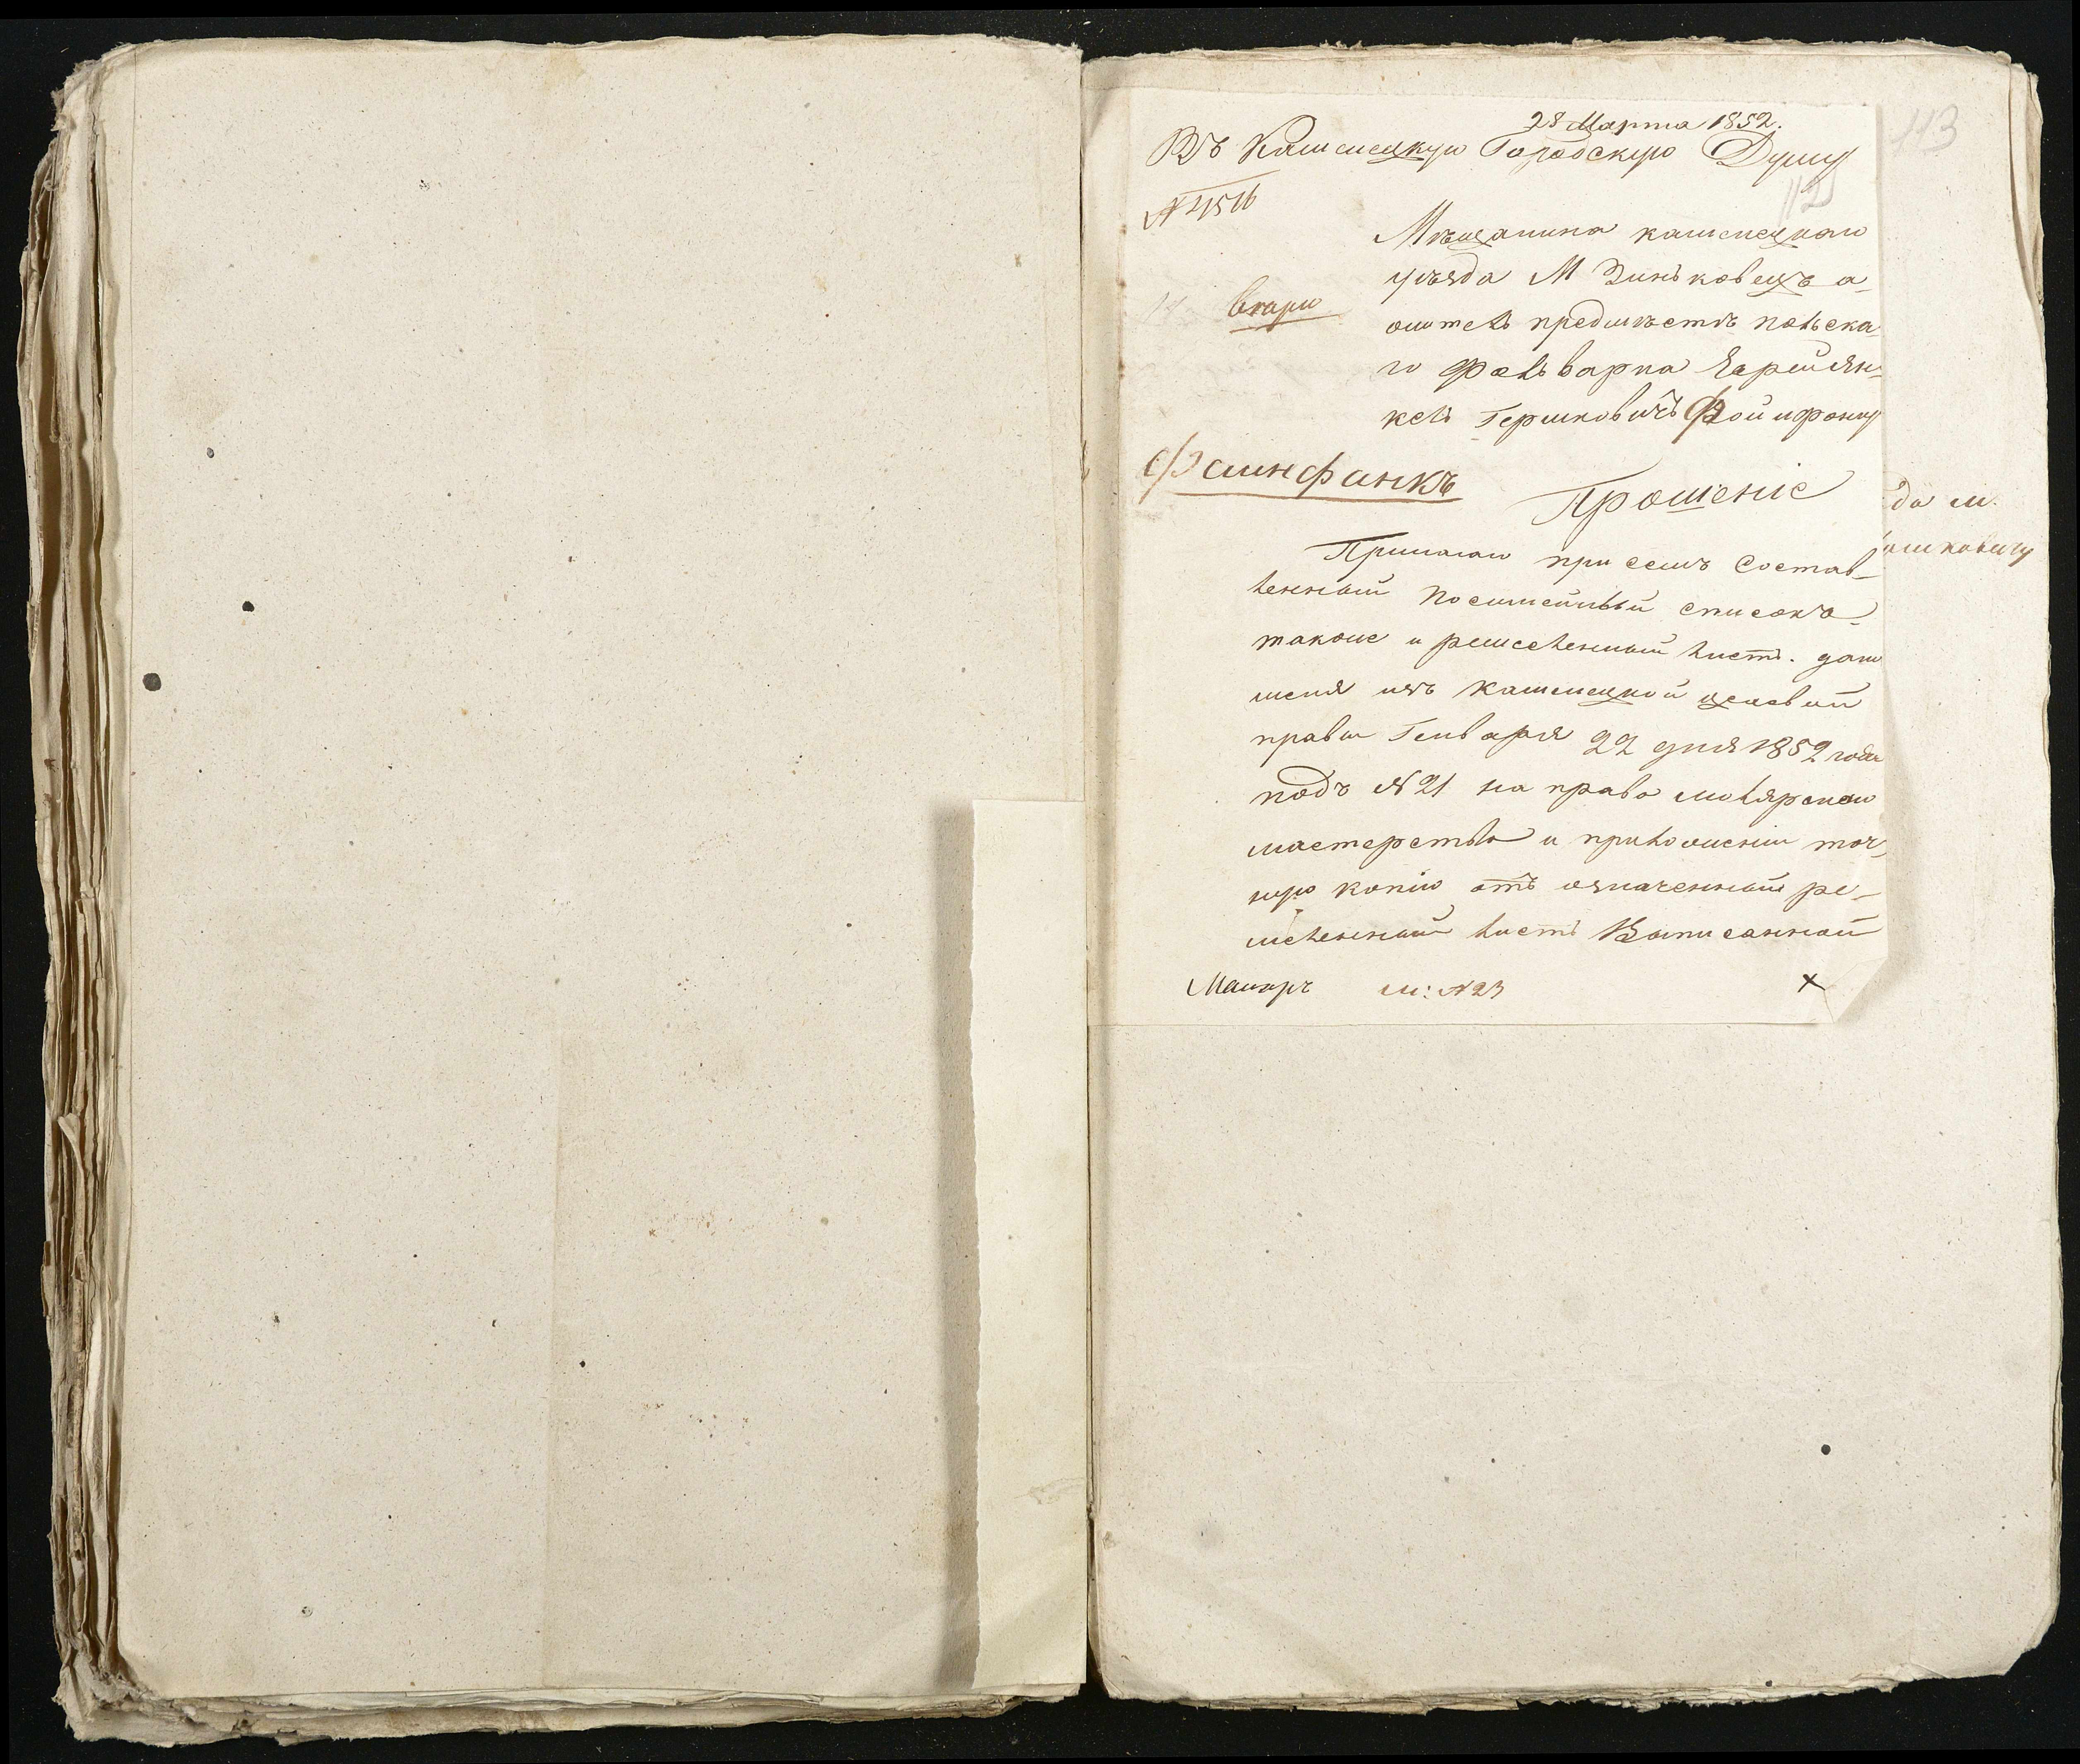 28 Марта 1852.
Въ Каменецкую Городскую Думу
113
112
№ 4516
Мѣщанина каменецкаго
уѣзда М Зиньковецъ а
жителъ предмѣстъ польска
го Фольварка
келъ Гершковичъ
Фаинфанкъ
Прошеніе
да м.
ошковичу
Прилагаю при семъ Состав-
ленный Посимейный списокъ
также и ремесленный листъ. дан
меня изъ каменецкой цеховой
правы Генваря 22 дня 1852 года
подъ № 21 на право молярскаго
мастерства и приложении точ-
ную копію отъ означенный ре-
месленный листъ Выписанной
Маляръ м: № 23